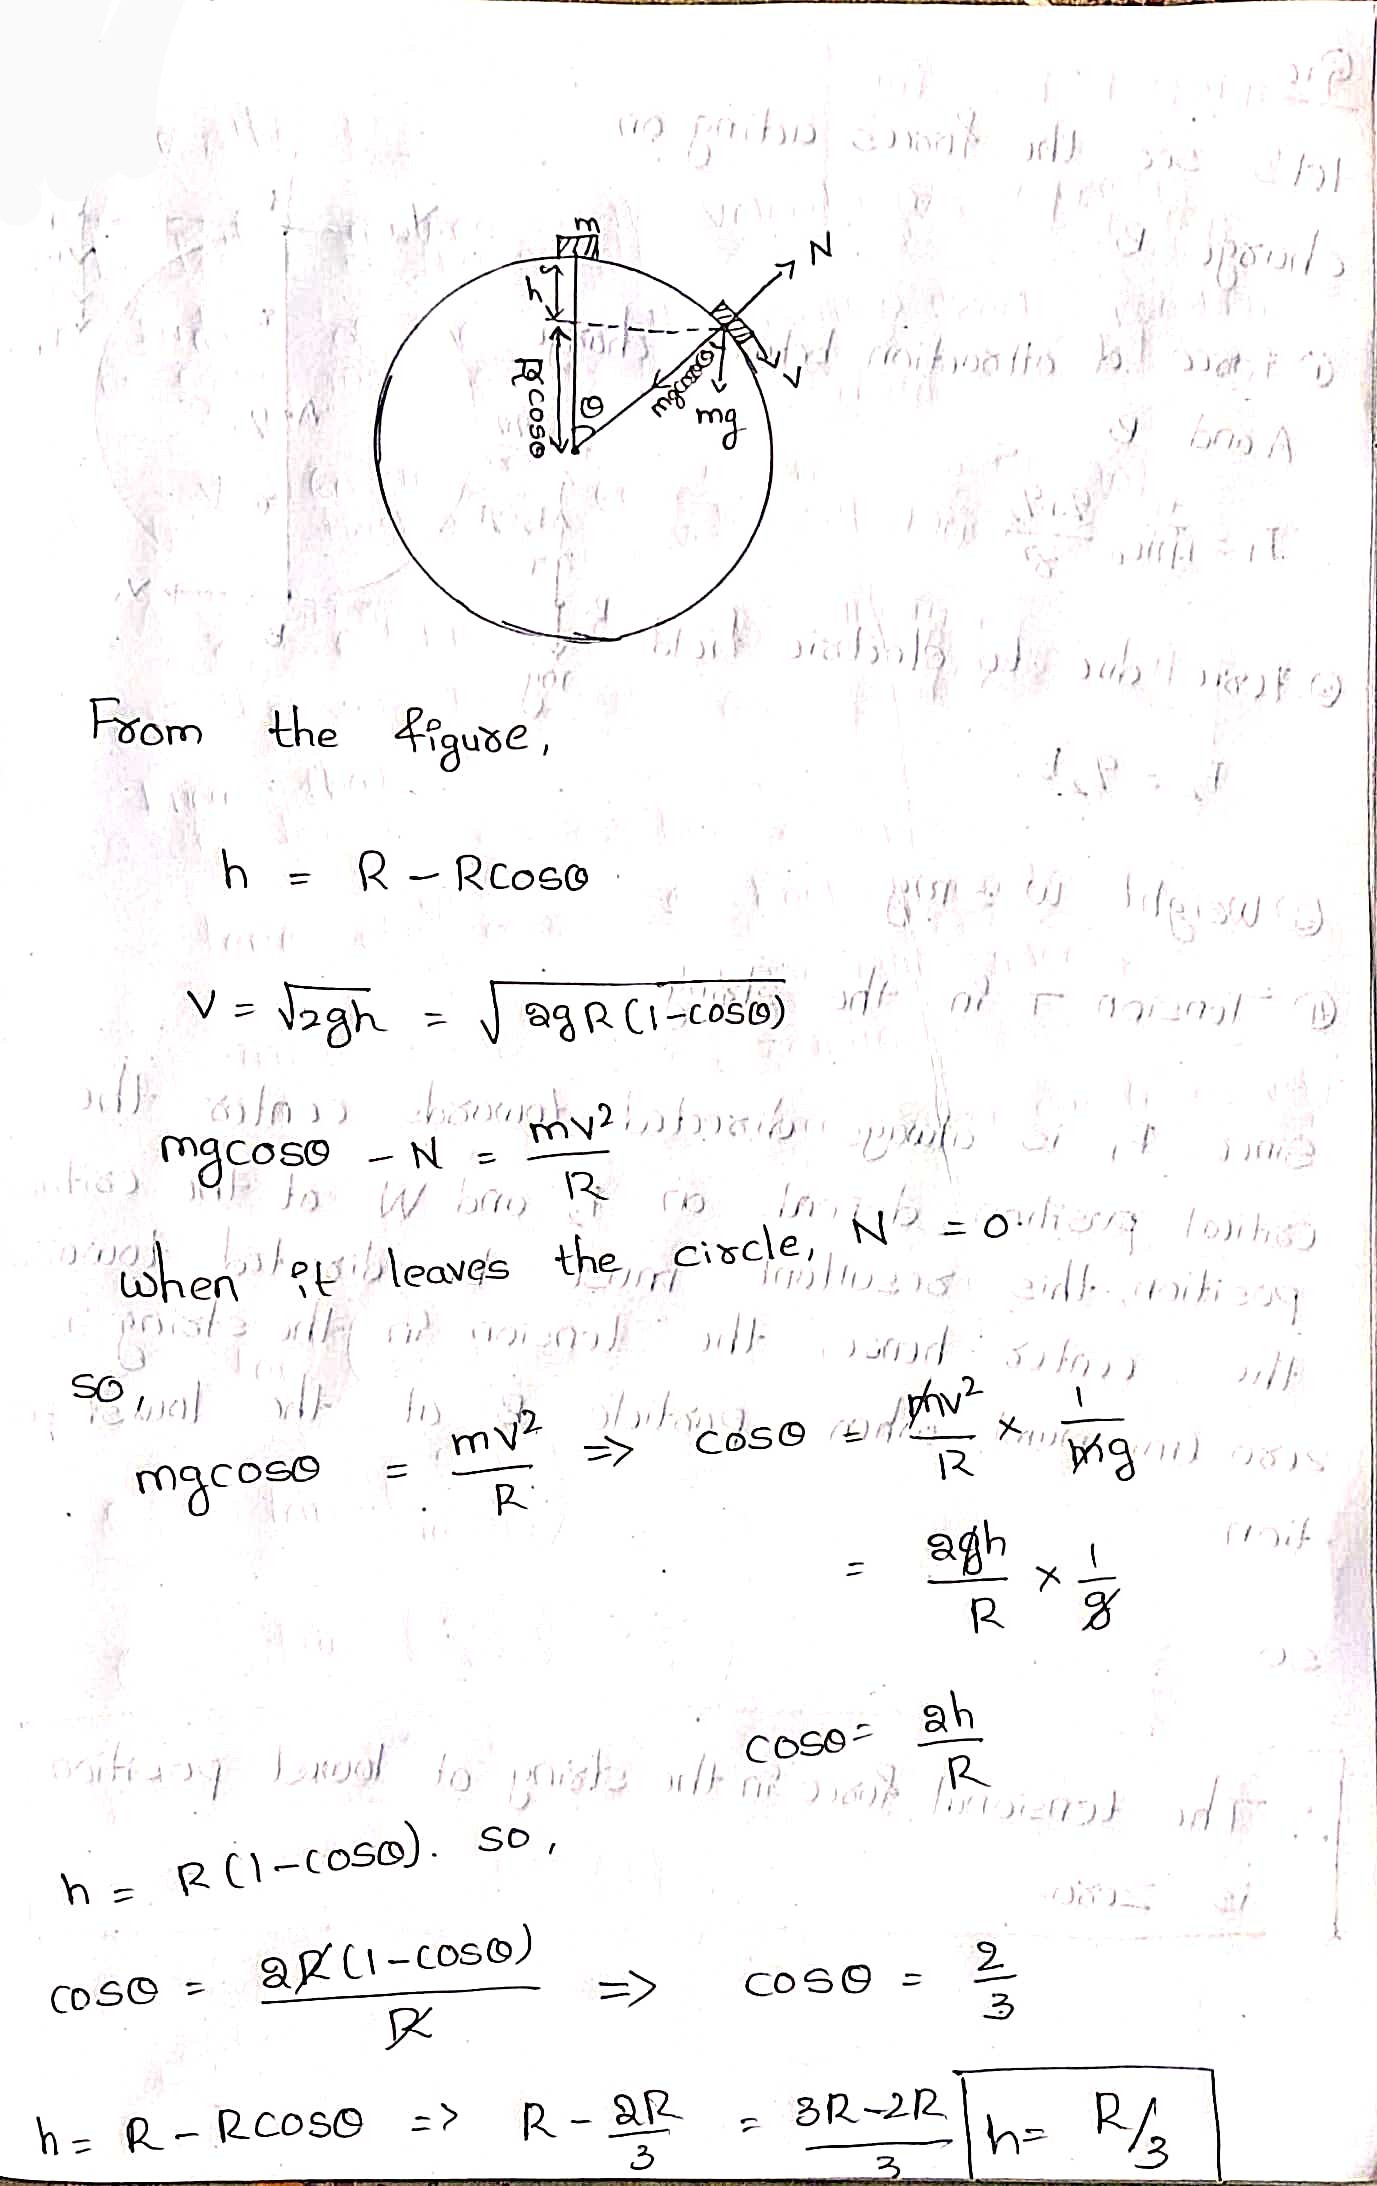 m
N
h
Rcosθ
θ
mgcosθ
mg
v
From the figure,
h = R - Rcosθ
v = √2gh = √2gR(1-cosθ)
mgcosθ - N = mv²/R
when it leaves the circle, N = 0
so,
mgcosθ = mv²/R => cosθ = mv²/R × 1/mg
= 2gh/R × 1/g
cosθ = 2h/R
h = R(1-cosθ). so,
cosθ = 2R(1-cosθ)/R => cosθ = 2/3
h = R - Rcosθ => R - 2R/3 = 3R-2R/3 h = R/3